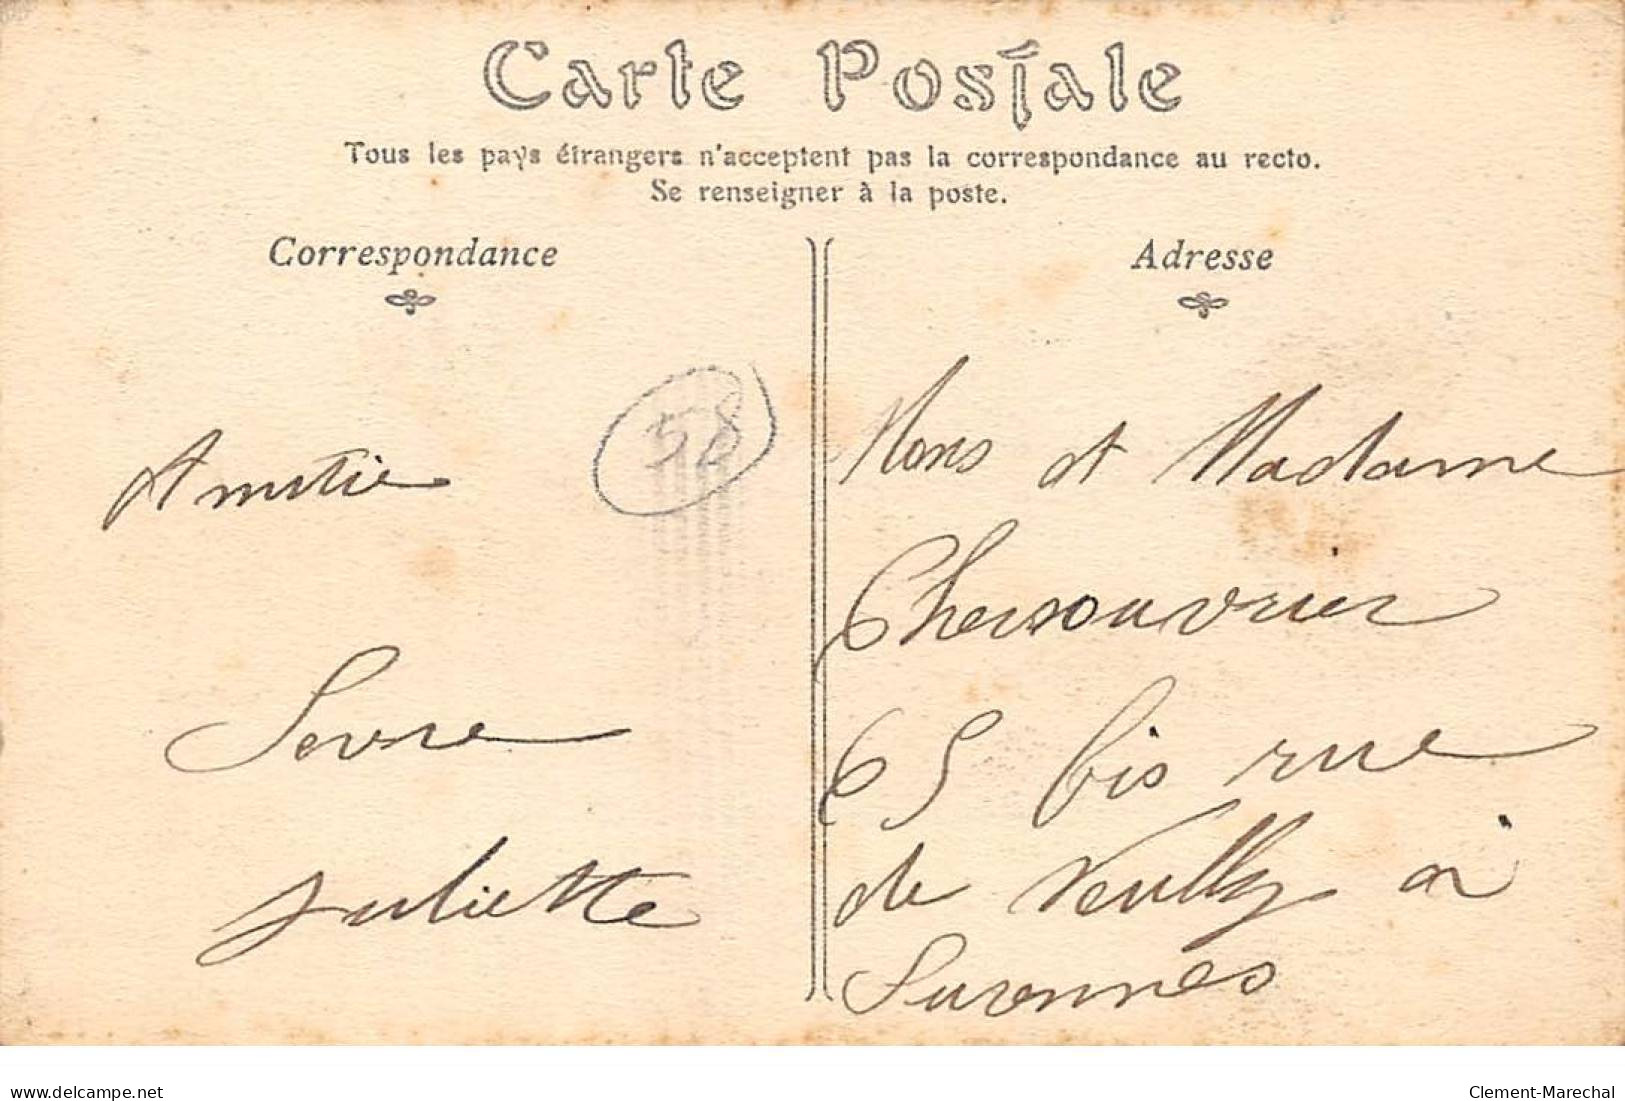 Carte Postale
Tous les pays étrangers n'acceptent pas la correspondance au recto.
Se renseigner à la poste.
Correspondance
Amitie
58
Sevre
Juliette
Adresse
Mons et Madame
65 bis rue
de Neuilly à
Suresnes
delcampe.net
Clement-Marechal